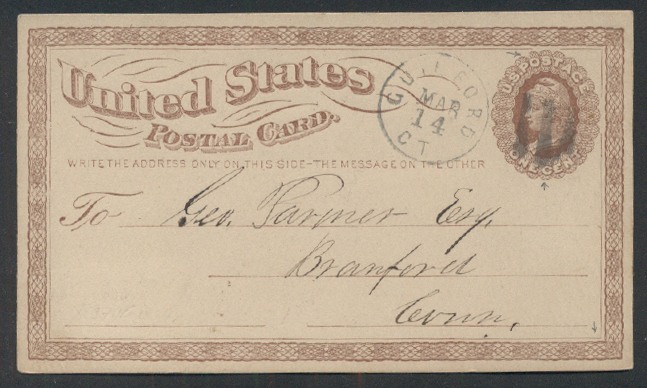 United States
POSTAL CARD.
WRITE THE ADDRESS ONLY ON THIS SIDE-THE MESSAGE ON THE OTHER
GUILFORD
MAR
14
CT
U.S. POSTAGE
ONE CENT
To Geo. Parmer Esq.
Branford
Conn.